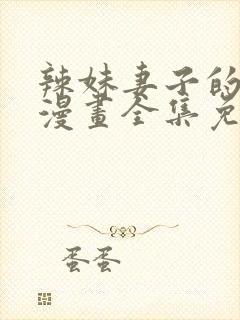 辣妹妻子的
漫畫全集免
蛋蛋